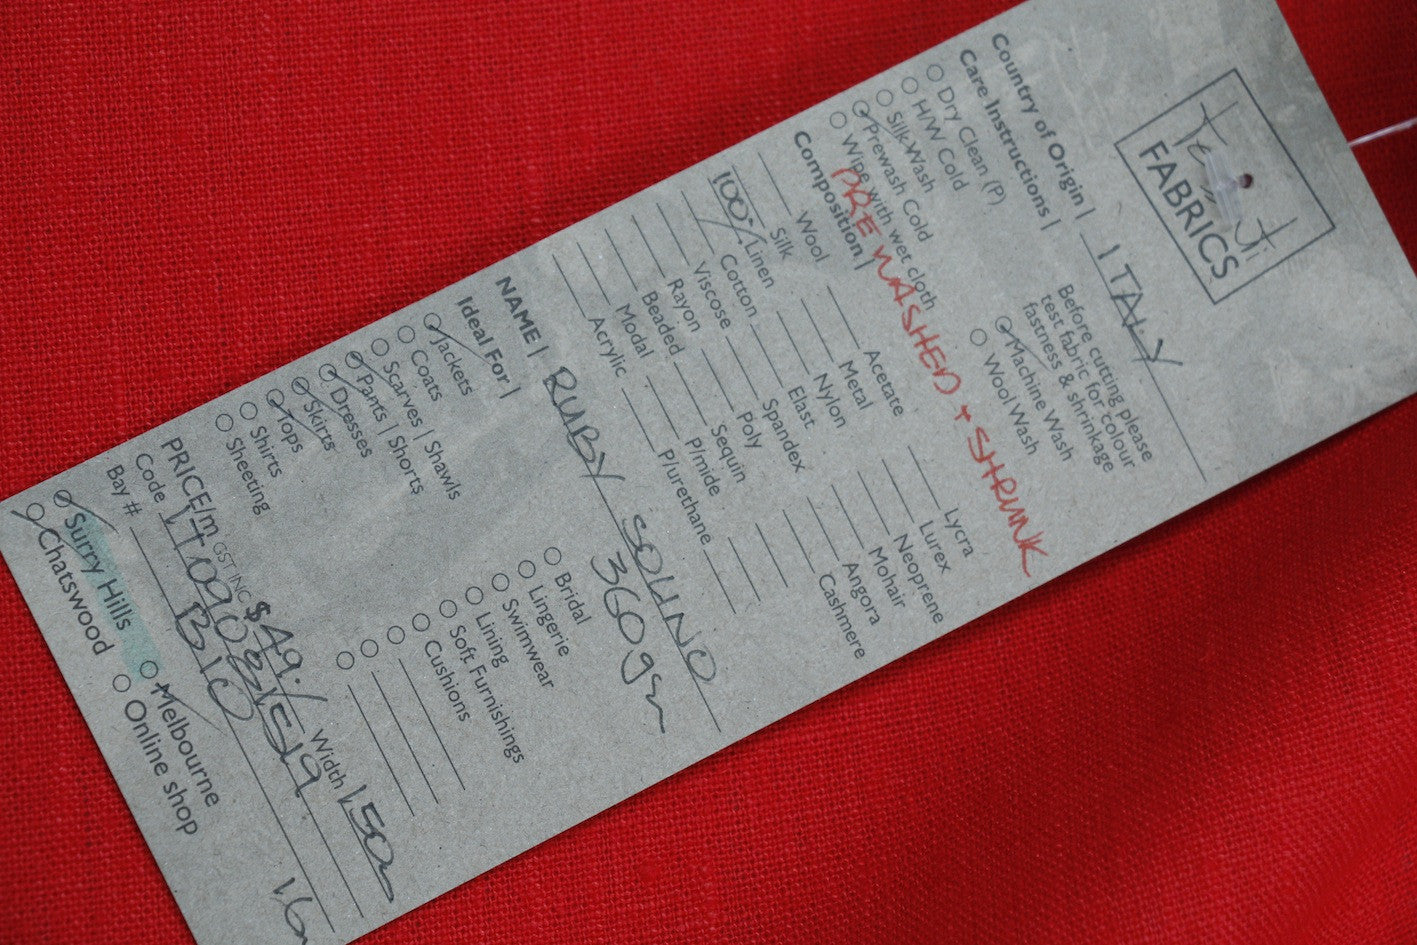 Tessuti
FABRICS
Country of Origin | ITALY
Care Instructions |
Dry Clean (P)
H/W Cold
Silk Wash
Prewash Cold
Wipe with wet cloth
Before cutting please
test fabric for colour
fastness & shrinkage
Machine Wash
Wool Wash
PRE WASHED + SHRUNK
Composition |
Wool
Silk
100% Linen
Cotton
Viscose
Rayon
Beaded
Modal
Acrylic
Acetate
Metal
Nylon
Elast
Spandex
Poly
Sequin
P/mide
P/urethane
Lycra
Lurex
Neoprene
Mohair
Angora
Cashmere
NAME | RUBY SOLINO
360gm
Ideal For |
Jackets
Coats
Scarves | Shawls
Pants | Shorts
Dresses
Skirts
Tops
Shirts
Sheeting
Bridal
Lingerie
Swimwear
Lining
Soft Furnishings
Cushions
PRICE/m GST INC $49./ Width 150
Code
Bay # B10
Surry Hills
Chatswood
Melbourne
Online shop